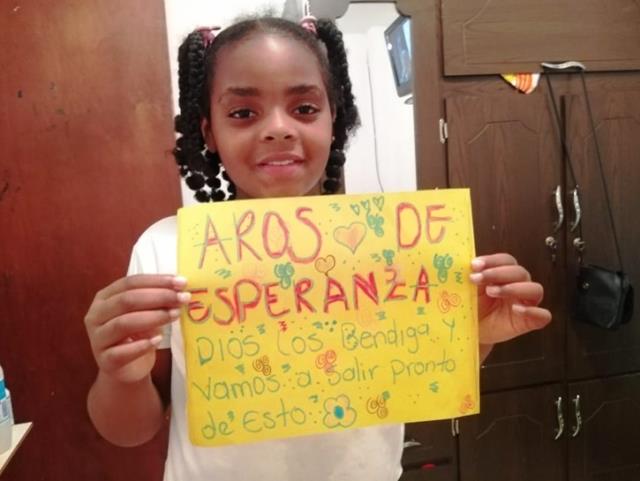 AROS DE
ESPERANZA
DIOS los Bendiga Y
Vamos a Salir Pronto
de Esto.